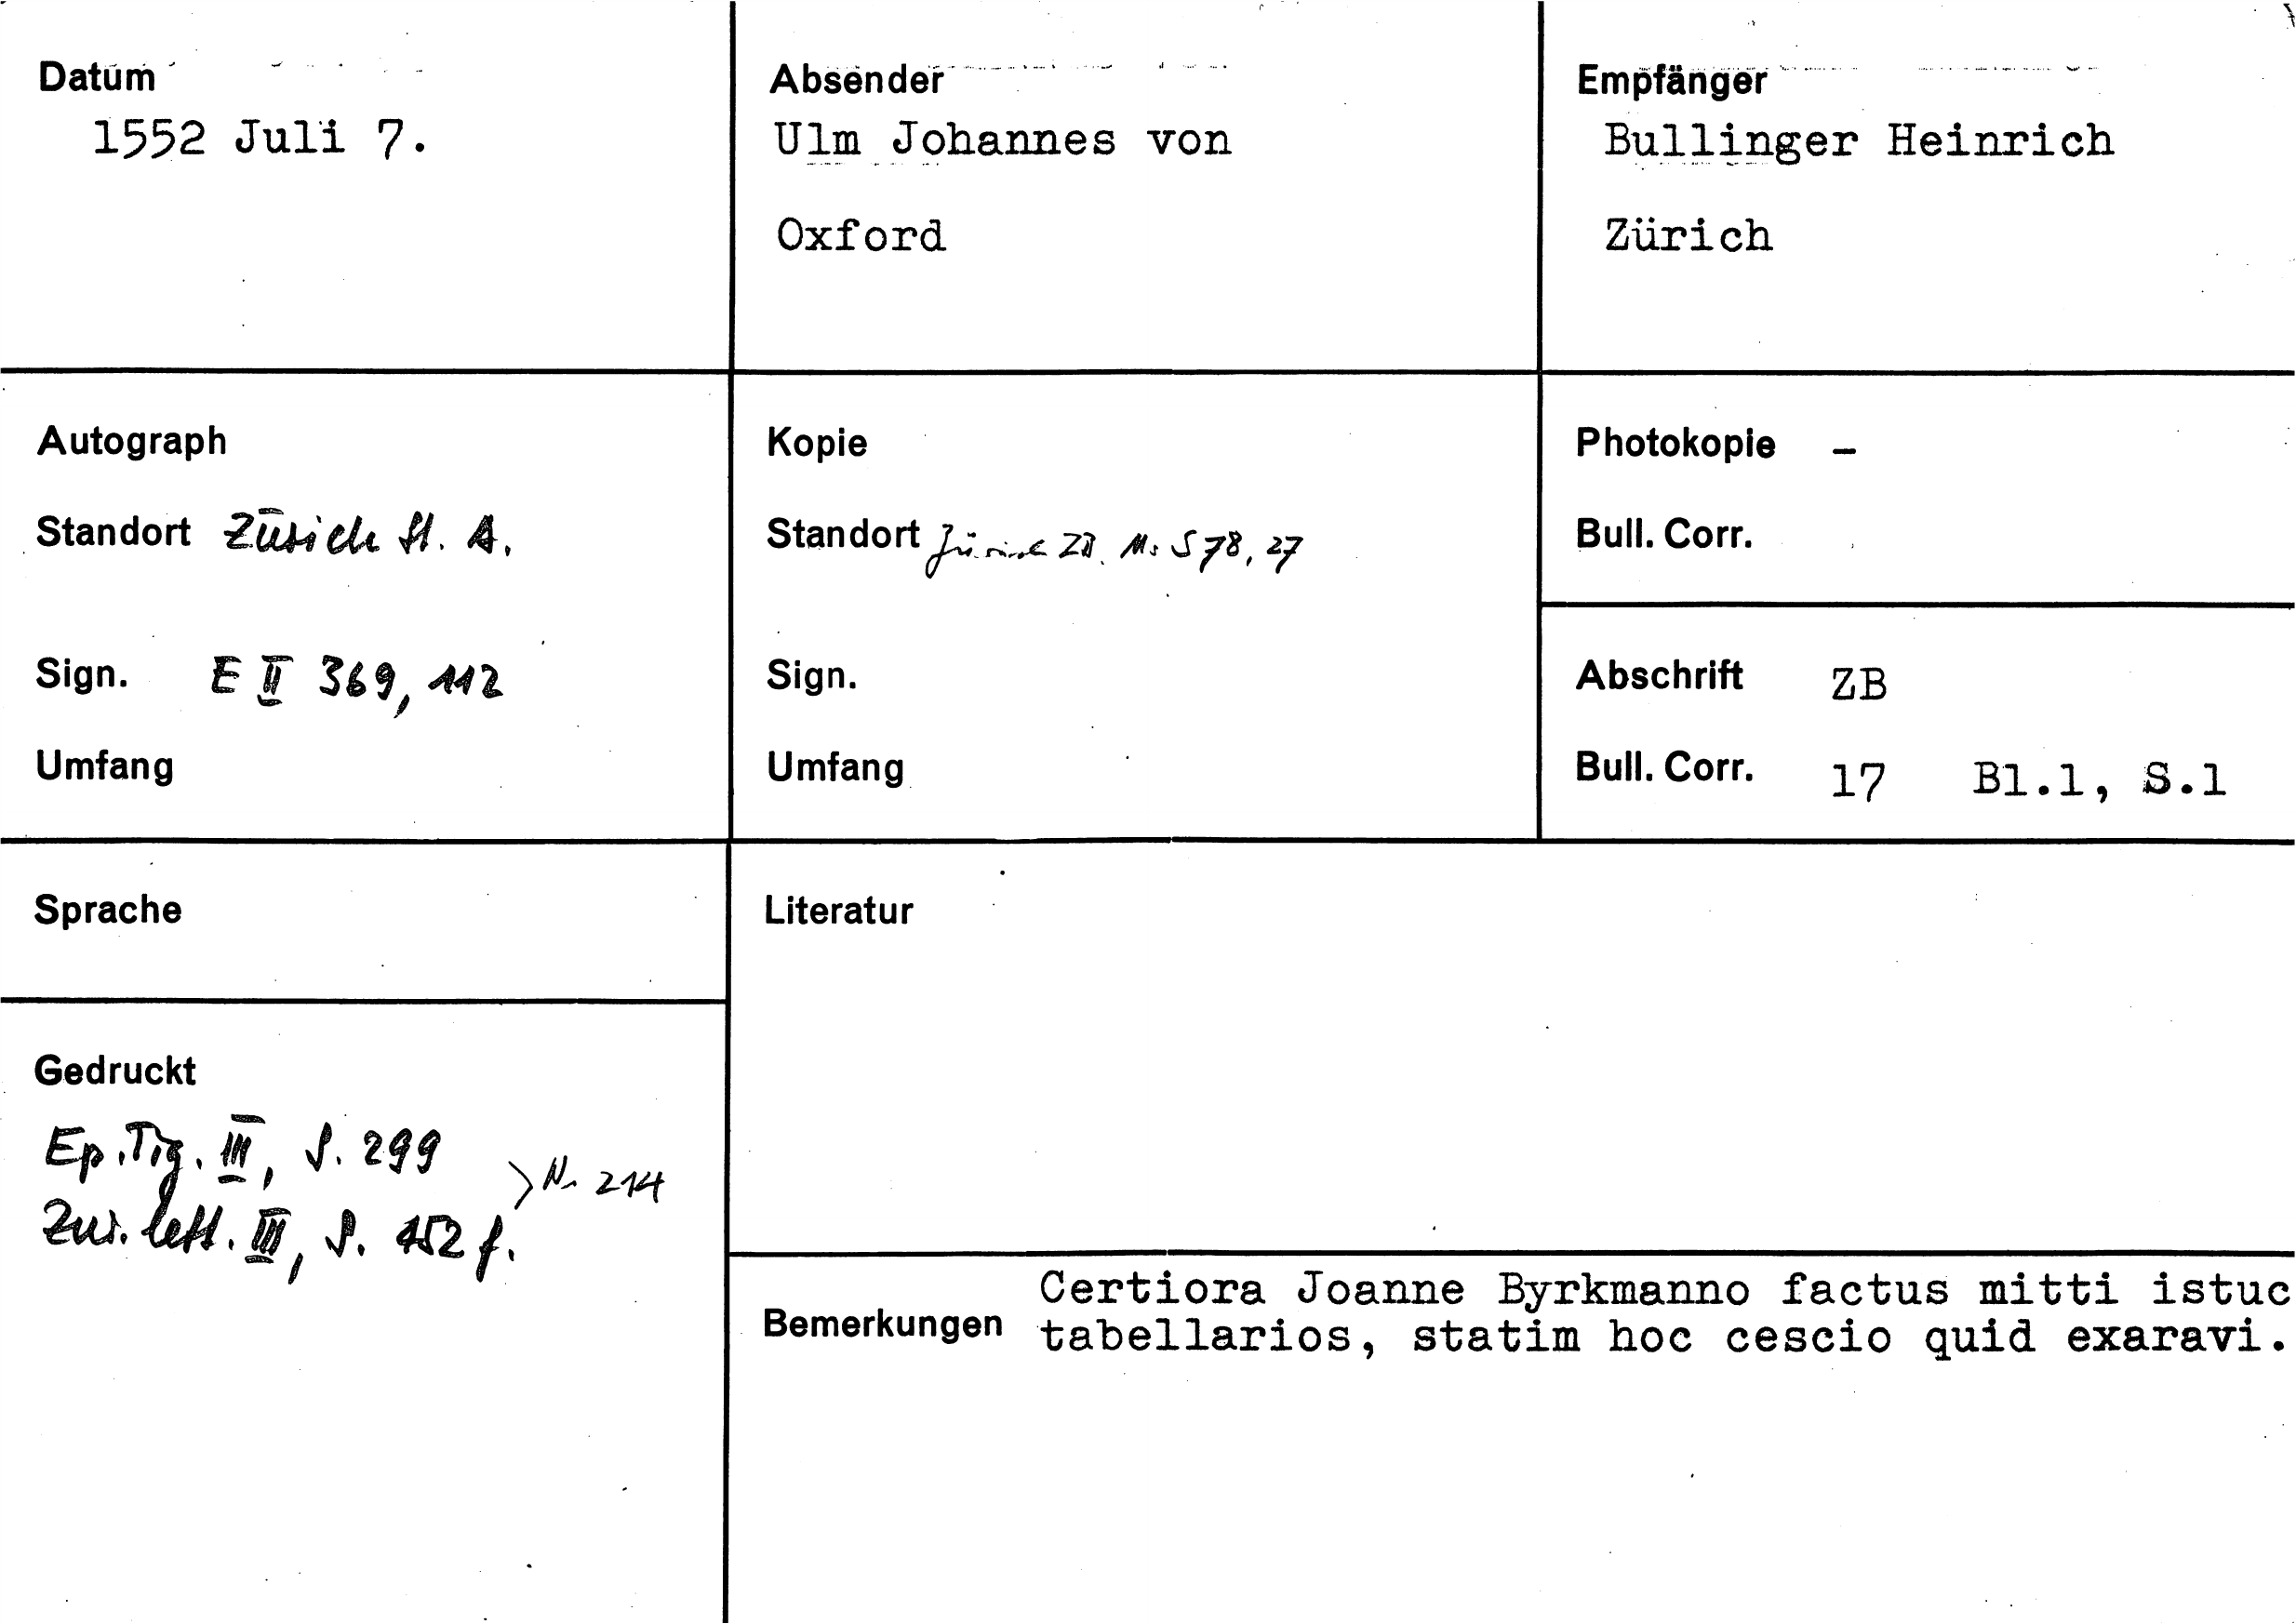 Datum
1552 Juli 7.
Absender
Ulm Johannes von
Oxford
Empfänger
Bullinger Heinrich
Zürich
Autograph
Standort Zürich St. A.
Sign. E II 369, 112
Umfang
Kopie
Standort Zürich ZB. Ms S 78, 27
Sign.
Umfang
Photokopie –
Bull. Corr.
Abschrift ZB
Bull. Corr. 17 Bl.1, S.1
Sprache
Literatur
Gedruckt
Ep. Tig. III, S. 299
Zur. lett. III, S. 452 f.
> Nr. 214
Bemerkungen
Certiora Joanne Byrkmanno factus mitti istuc
tabellarios, statim hoc cescio quid exaravi.